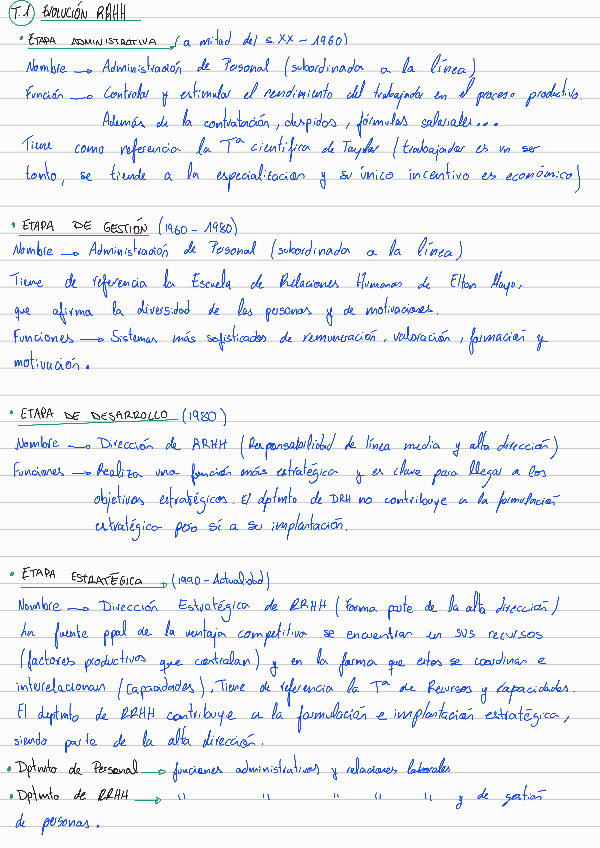 T.1 EVOLUCIÓN RRHH
• ETAPA ADMINISTRATIVA (a mitad del s.XX - 1960)
Nombre → Administración de Personal (subordinada a la línea)
Función → Controlar y estimular el rendimiento del trabajador en el proceso productivo.
Además de la contratación, despidos, fórmulas salariales...
Tiene como referencia la Tª científica de Taylor (trabajador es un ser
tonto, se tiende a la especialización y su único incentivo es económico)
• ETAPA DE GESTIÓN (1960 - 1980)
Nombre → Administración de Personal (subordinada a la línea)
Tiene de referencia la Escuela de Relaciones Humanas de Elton Mayo,
que afirma la diversidad de las personas y de motivaciones.
Funciones → Sistemas más sofisticados de remuneración, valoración, formación y
motivación.
• ETAPA DE DESARROLLO (1980)
Nombre → Dirección de RRHH (Responsabilidad de línea media y alta dirección)
Funciones → Realiza una función más estratégica y es clave para llegar a los
objetivos estratégicos. El dptmto de DRH no contribuye a la formulación
estratégica pero sí a su implantación.
• ETAPA ESTRATÉGICA (1990 - Actualidad)
Nombre → Dirección Estratégica de RRHH (Forma parte de la alta dirección)
La fuente ppal de la ventaja competitiva se encuentran en sus recursos
(factores productivos que controlan) y en la forma que estos se coordinan e
interrelacionan (capacidades). Tiene de referencia la Tª de Recursos y capacidades.
El deptmto de RRHH contribuye a la formulación e implantación estratégica,
siendo parte de la alta dirección.
• Dptmto de Personal → funciones administrativas y relaciones laborales
• Dptmto de RRHH → " " " " " y de gestión
de personas.